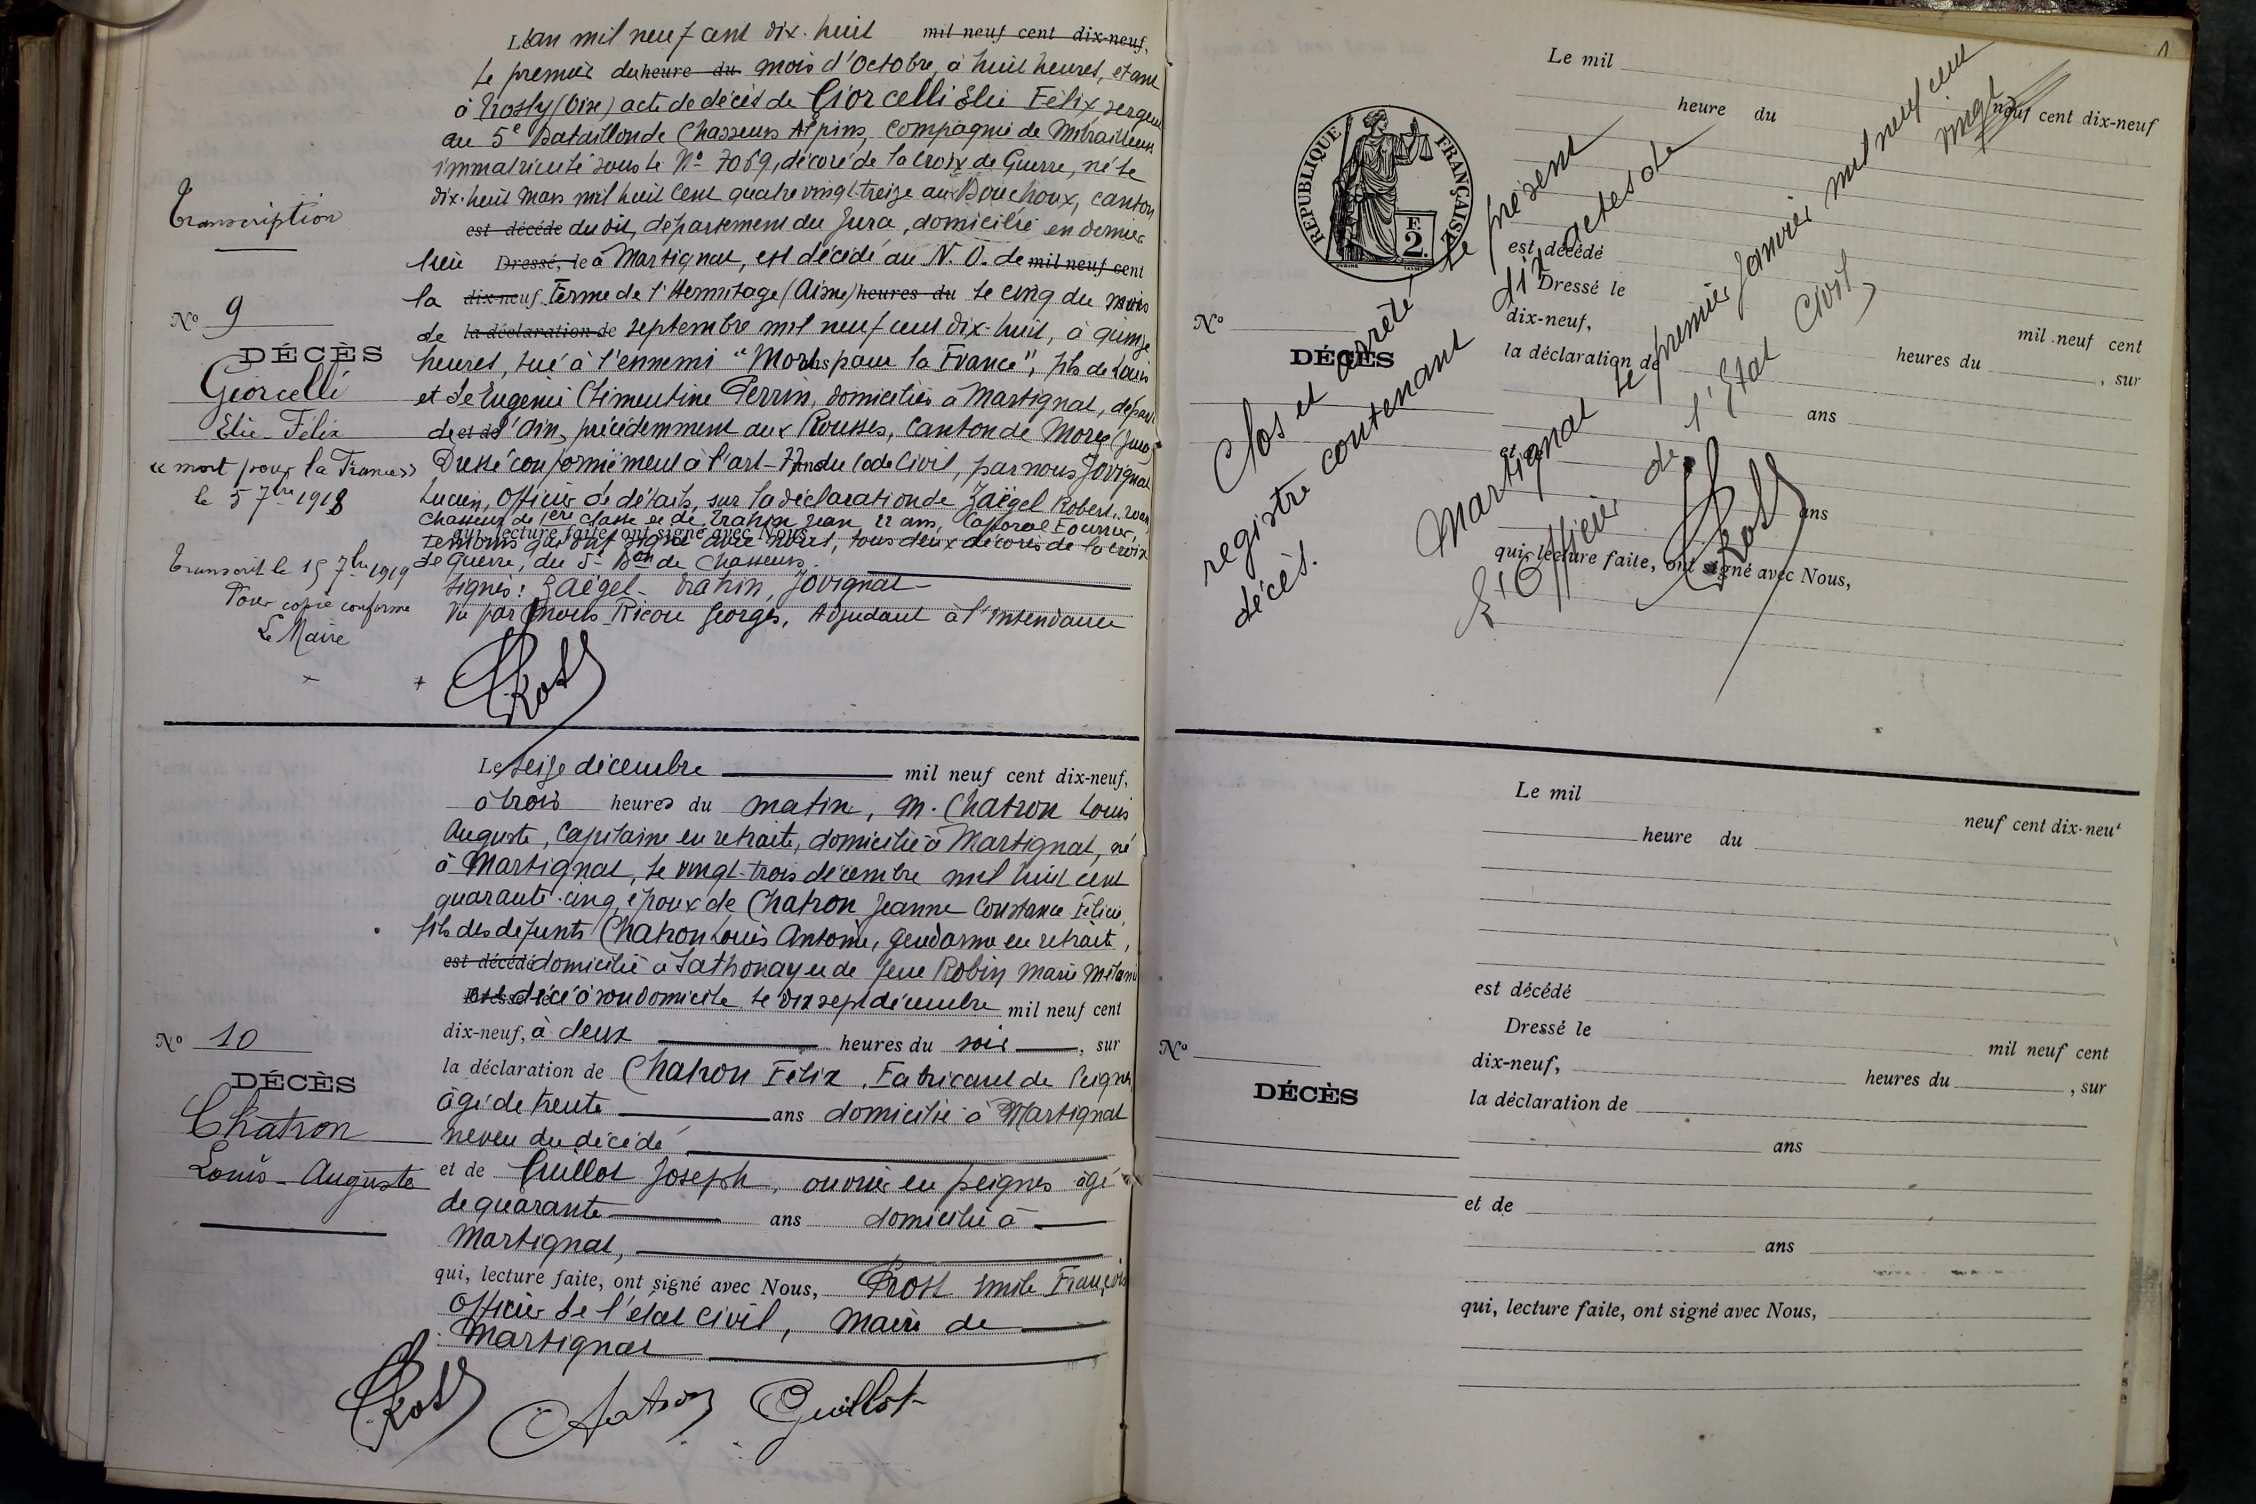 Transcription
N° 9
DÉCÈS
Giorcelli
Elie-Félix
« mort pour la France »
le 5 7bre 1918
Transcrit le 15 7bre 1919
Pour copie conforme
Le Maire
L'an mil neuf cent dix-huit mil neuf cent dix-neuf,
le premier du heure du mois d'Octobre, à huit heures, étant
à Trosly (Oise) acte de décès de Giorcelli Elie Félix, sergent
au 5e Bataillon de Chasseurs Alpins, Compagnie de Mitrailleuses
immatriculé sous le N° 7069, décoré de la croix de Guerre, né le
dix-huit Mars mil huit cent quatre vingt-treize aux Bouchoux, canton
est décédé du dit, département du Jura, domicilié en dernier
lieu Dressé, le à Martignat, est décédé au N. O. de mil neuf cent
la dix-neuf Ferme de l'Hermitage (Aisne) heures du le cinq du mois
de la déclaration de septembre mil neuf cent dix-huit, à quinze
heures, tué à l'ennemi "Mort pour la France", fils de Louis
et de Eugénie Clémentine Perrin, domiciliés à Martignat, départt
de et de l'Ain, précédemment aux Rousses, Canton de Morez (Jura)
Dressé conformément à l'art-77 ans du Code Civil, par nous Jovignat
Lucien, Officier de détails, sur la déclaration de Zaëgel Robert,
Chasseur de 1ère classe et de Trahin Jean, 22 ans, Caporal Fourrier,
qui, lecture faite, ont signé avec Nous,
témoins qui ont signé avec nous, tous deux décorés de la croix
de guerre, du 5e Bon de Chasseurs.
Signés : Zaëgel - Trahin, Jovignat
Vu par nous Ricou Georges, Adjudant à l'intendance
Prost
N° 10
DÉCÈS
Chatron
Louis-Auguste
Le seize décembre mil neuf cent dix-neuf,
à trois heures du matin, M. Chatron Louis
Auguste, Capitaine en retraite, domicilié à Martignat, né
à Martignat, le vingt-trois décembre mil huit cent
quarante-cinq, époux de Chatron Jeanne Constance Félicie,
fils des défunts Chatron Louis Antoine, gendarme en retraite,
est décédé domicilié à Sathonay et de feue Robin Marie Mélanie
est décédé à son domicile le dix sept décembre mil neuf cent
dix-neuf, à deux heures du soir, sur
la déclaration de Chatron Félix, Fabricant de Peignes
âgé de trente ans domicilié à Martignat
neveu du décédé
et de Guillot Joseph, ouvrier en peignes âgé
de quarante ans domicilié à
Martignat,
qui, lecture faite, ont signé avec Nous, Prost Emile François
Officier de l'état civil, Maire de
Martignat
Prost Chatron Guillot
Le mil neuf cent dix-neuf
heure du
RÉPUBLIQUE FRANÇAISE
F.
2.
est décédé
Dressé le
mil neuf cent
dix-neuf, heures du , sur
N°
DÉCÈS
la déclaration de
ans
et de
ans
qui, lecture faite, ont signé avec Nous,
Clos et arrêté le présent
registre contenant dix actes de
décès.
Martignat le premier Janvier mil neuf cent
vingt
L'Officier de l'Etat Civil,
Prost
Le mil neuf cent dix-neuf
heure du
est décédé
Dressé le
mil neuf cent
N°
DÉCÈS
dix-neuf, heures du , sur
la déclaration de
ans
et de
ans
qui, lecture faite, ont signé avec Nous,